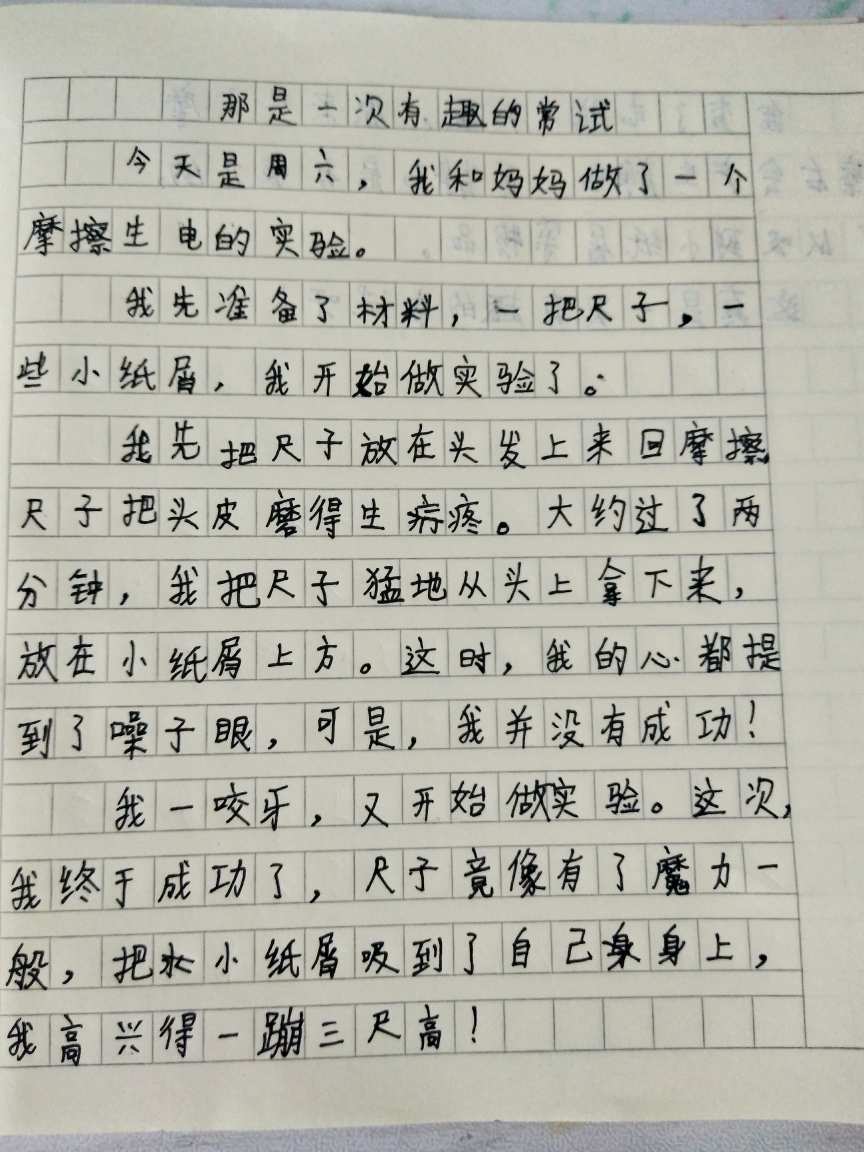 那是一次有趣的常试
今天是周六，我和妈妈做了一个
摩擦生电的实验。
我先准备了材料，一把尺子，一
些小纸屑，我开始做实验了。
我先把尺子放在头发上来回摩擦
尺子把头皮磨得生疼。大约过了两
分钟，我把尺子猛地从头上拿下来，
放在小纸屑上方。这时，我的心都提
到了嗓子眼，可是，我并没有成功！
我一咬牙，又开始做实验。这次，
我终于成功了，尺子竟像有了魔力一
般，把小纸屑吸到了自己身上，
我高兴得一蹦三尺高！